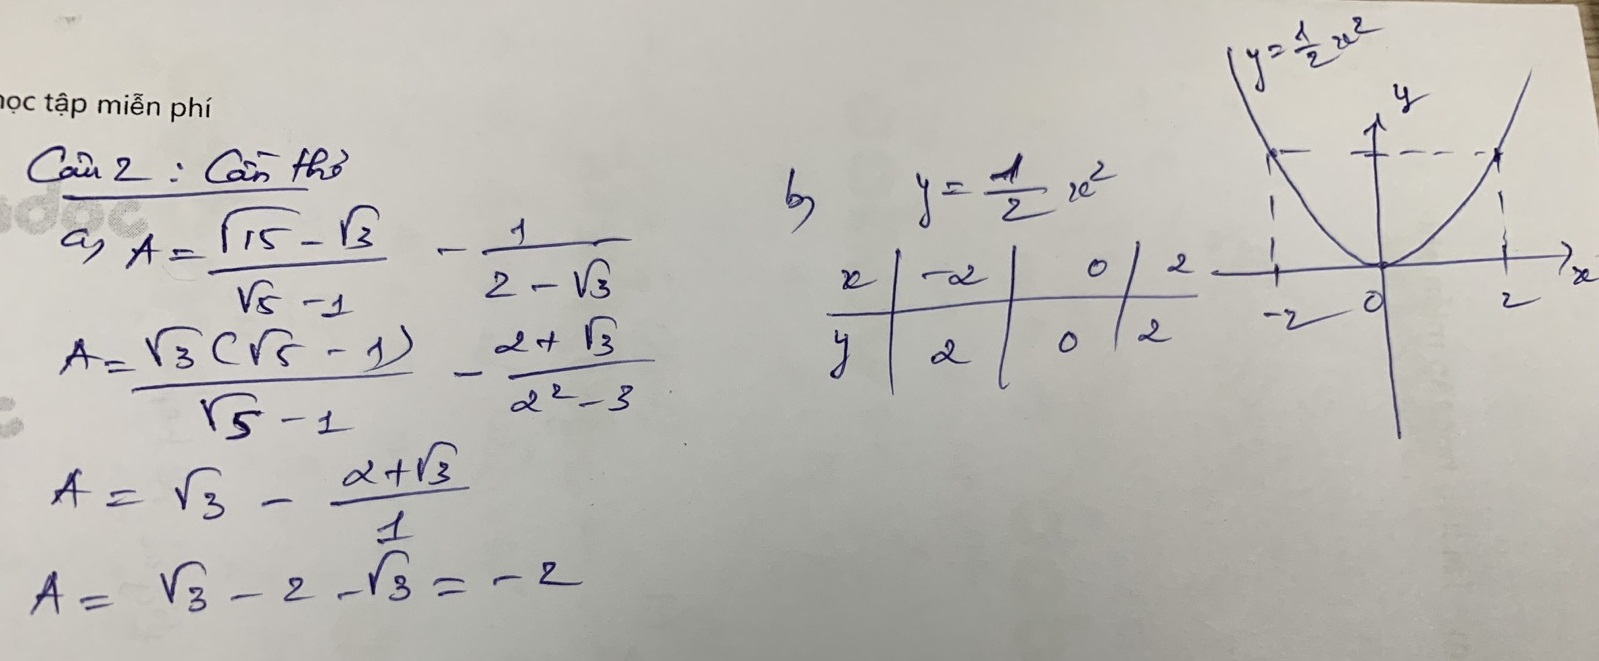 học tập miễn phí
Câu 2 : Cần thơ
a) A = \frac{\sqrt{15} - \sqrt{3}}{\sqrt{5} - 1} - \frac{1}{2 - \sqrt{3}}
A = \frac{\sqrt{3}(\sqrt{5} - 1)}{\sqrt{5} - 1} - \frac{2 + \sqrt{3}}{2^2 - 3}
A = \sqrt{3} - \frac{2 + \sqrt{3}}{1}
A = \sqrt{3} - 2 - \sqrt{3} = -2
b) y = \frac{1}{2} x^2
x | -2 | 0 | 2
y | 2 | 0 | 2
y = \frac{1}{2} x^2
y
-2 0 2 x